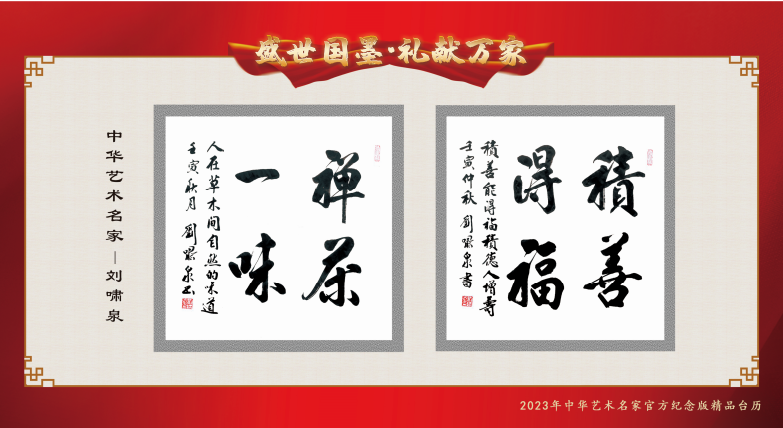 盛世国墨·礼献万家
中华艺术名家—刘啸泉
禅茶
一味
人在草木间自然的味道
壬寅秋月 劉嘯泉书
積善
得福
積善能得福積德人增壽
壬寅仲秋 劉嘯泉書
2023年中华艺术名家官方纪念版精品台历